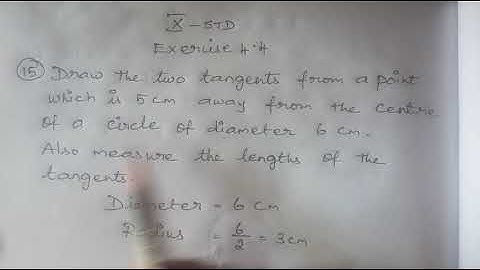 X - STD
Exercise 4.4
15) Draw the two tangents from a point
which is 5 cm away from the centre
of a circle of diameter 6 cm.
Also measure the lengths of the
tangents.
Diameter = 6 cm
Radius = 6/2 = 3 cm